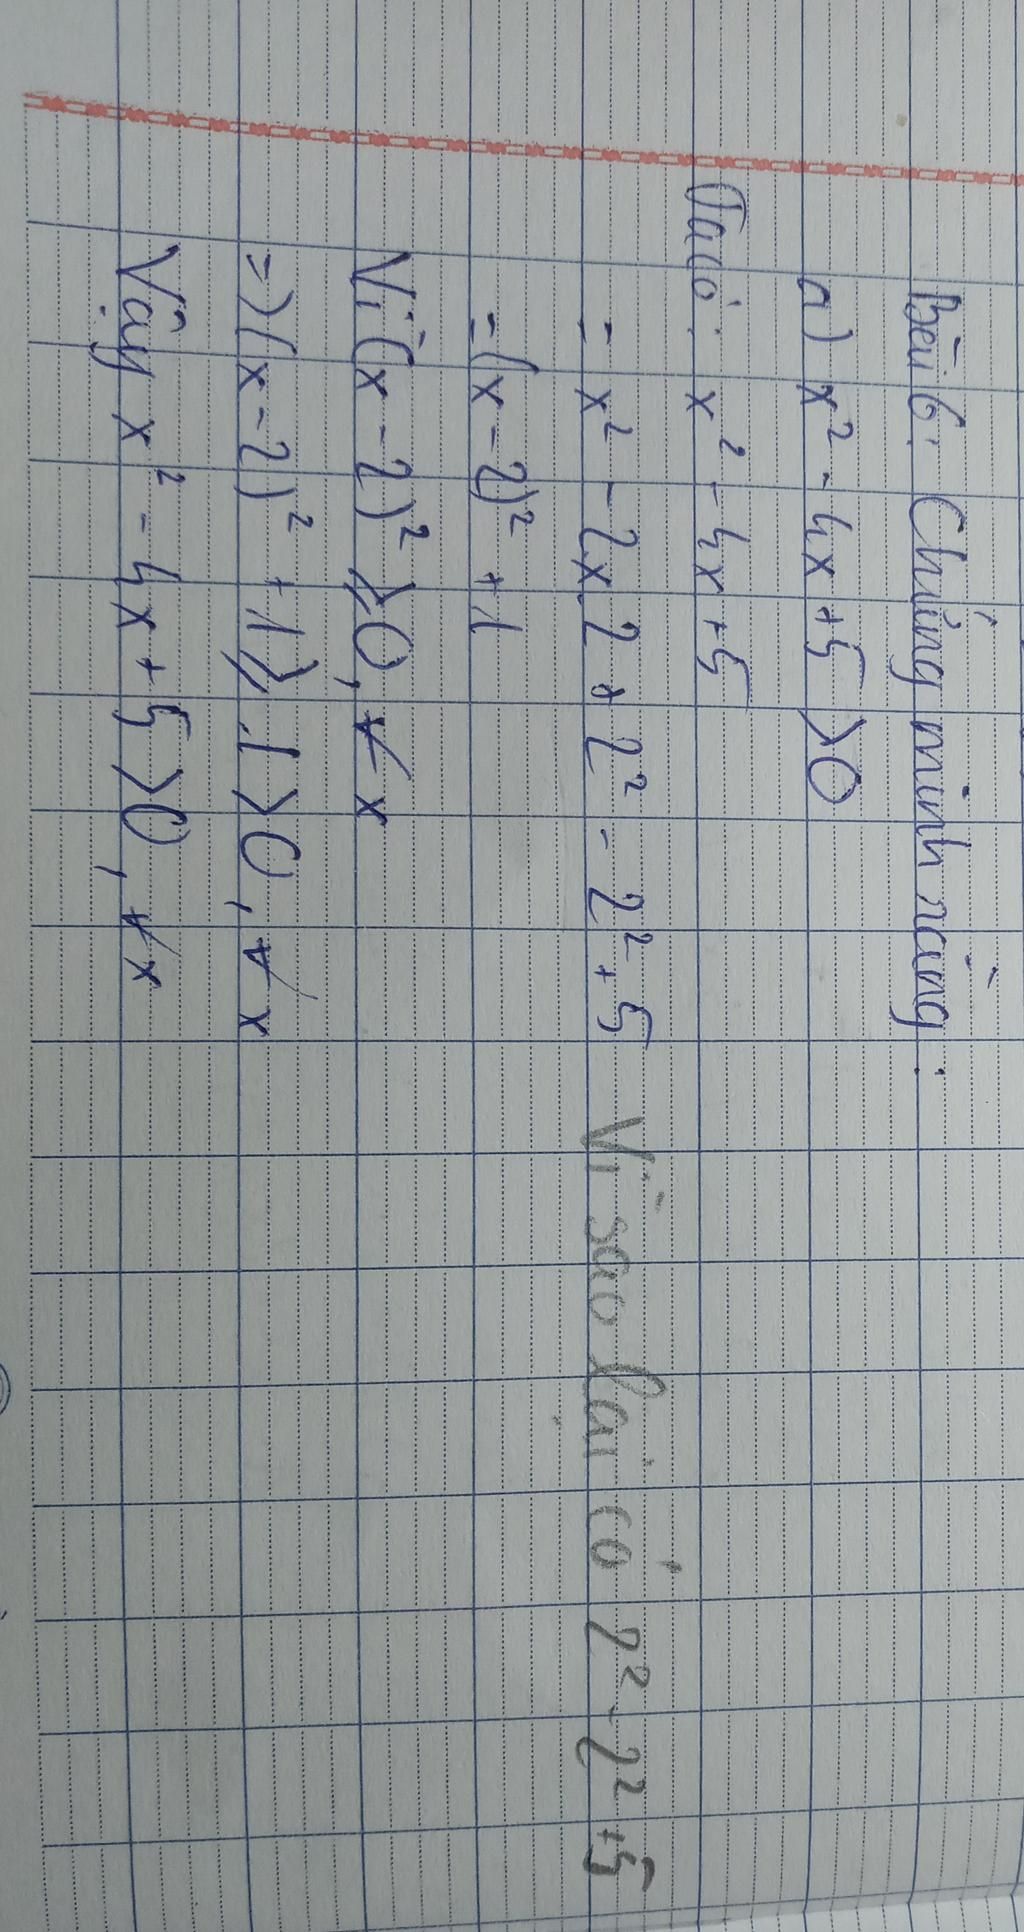 Bài 6: Chứng minh rằng:
a) x² - 4x + 5 > 0
Ta có: x² - 4x + 5
= x² - 2x.2 + 2² - 2² + 5 Vì sao lại có 2² - 2² + 5
= (x - 2)² + 1
Vì (x - 2)² ⩾ 0, ∀ x
=> (x - 2)² + 1 ⩾ 1 > 0, ∀ x
Vậy x² - 4x + 5 > 0, ∀ x